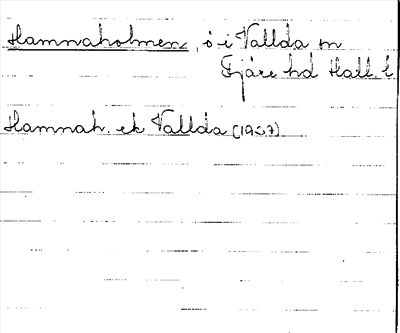 Hamnaholmen, ö i Vallda sn
Fjäre hd Hall. l
Hamnah. ek Vallda (1967)